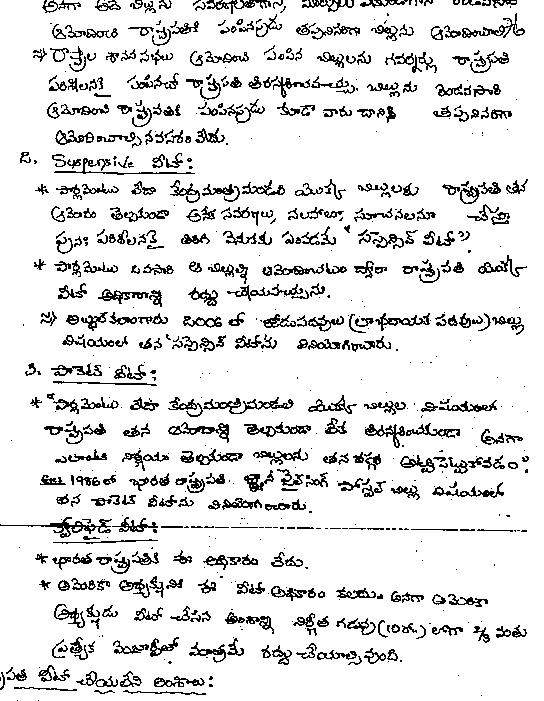 అనగా అదే బిల్లును
ఆమోదించి రాష్ట్రపతికి పంపినపుడు తప్పనిసరిగా బిల్లును ఆమోదించాలి
రాష్ట్రాల శాసనసభలు ఆమోదించి పంపిన బిల్లులను గవర్నర్లు రాష్ట్రపతి
పరిశీలనకై పంపినచో రాష్ట్రపతి తిరస్కరించవచ్చు. బిల్లును రెండవసారి
ఆమోదించి రాష్ట్రపతికి పంపినపుడు కూడా వారు దానికి తప్పనిసరిగా
ఆమోదించాల్సినవసరం లేదు.
2. Suspensive వీటో:
* పార్లమెంటు లేదా కేంద్రమంత్రిమండలి యొక్క బిల్లులకు రాష్ట్రపతి తన
ఆమోదం తెల్పకుండా అనేక సవరణలు, సలహాలు, సూచనలనూ చేస్తూ
పునః పరిశీలనకై తిరిగి వెనుకకు పంపడమే "సస్పెన్సివ్ వీటో".
* పార్లమెంటు ఒకసారి ఆ బిల్లుని ఆమోదించుటం ద్వారా రాష్ట్రపతి యొక్క
వీటో అధికారాన్ని రద్దు చేయవచ్చును.
అబ్దుల్ కలాంగారు 2006 లో జోడుపదవులు (లాభదాయక పదవులు) బిల్లు
విషయంలో తన సస్పెన్సివ్ వీటోను వినియోగించారు.
3. పాకెట్ వీటో:
* "పార్లమెంటు లేదా కేంద్రమంత్రిమండలి యొక్క బిల్లుల విషయంలో
రాష్ట్రపతి తన ఆమోదాన్ని తెల్పకుండా లేక తిరస్కరించకుండా అనగా
ఎలాంటి నిర్ణయం తెల్పకుండా బిల్లులను తన వద్ద అట్టిపెట్టుకోవడం"
1986 లో భారత రాష్ట్రపతి జ్ఞానీ జైల్‌సింగ్ పోస్టల్ బిల్లు విషయంలో
తన పాకెట్ వీటోను వినియోగించారు.
క్వాలిఫైడ్ వీటో:
* భారత రాష్ట్రపతికి ఈ అధికారం లేదు.
* అమెరికా అధ్యక్షునికి ఈ వీటో అధికారం కలదు. అనగా అమెరికా
అధ్యక్షుడు వీటో చేసిన అంశాన్ని నిర్ణీత గడువు లోగా 2/3 వంతు
ప్రత్యేక మెజార్టీతో మాత్రమే రద్దు చేయాల్సి వుంది.
వీటో చేయలేని అంశాలు: